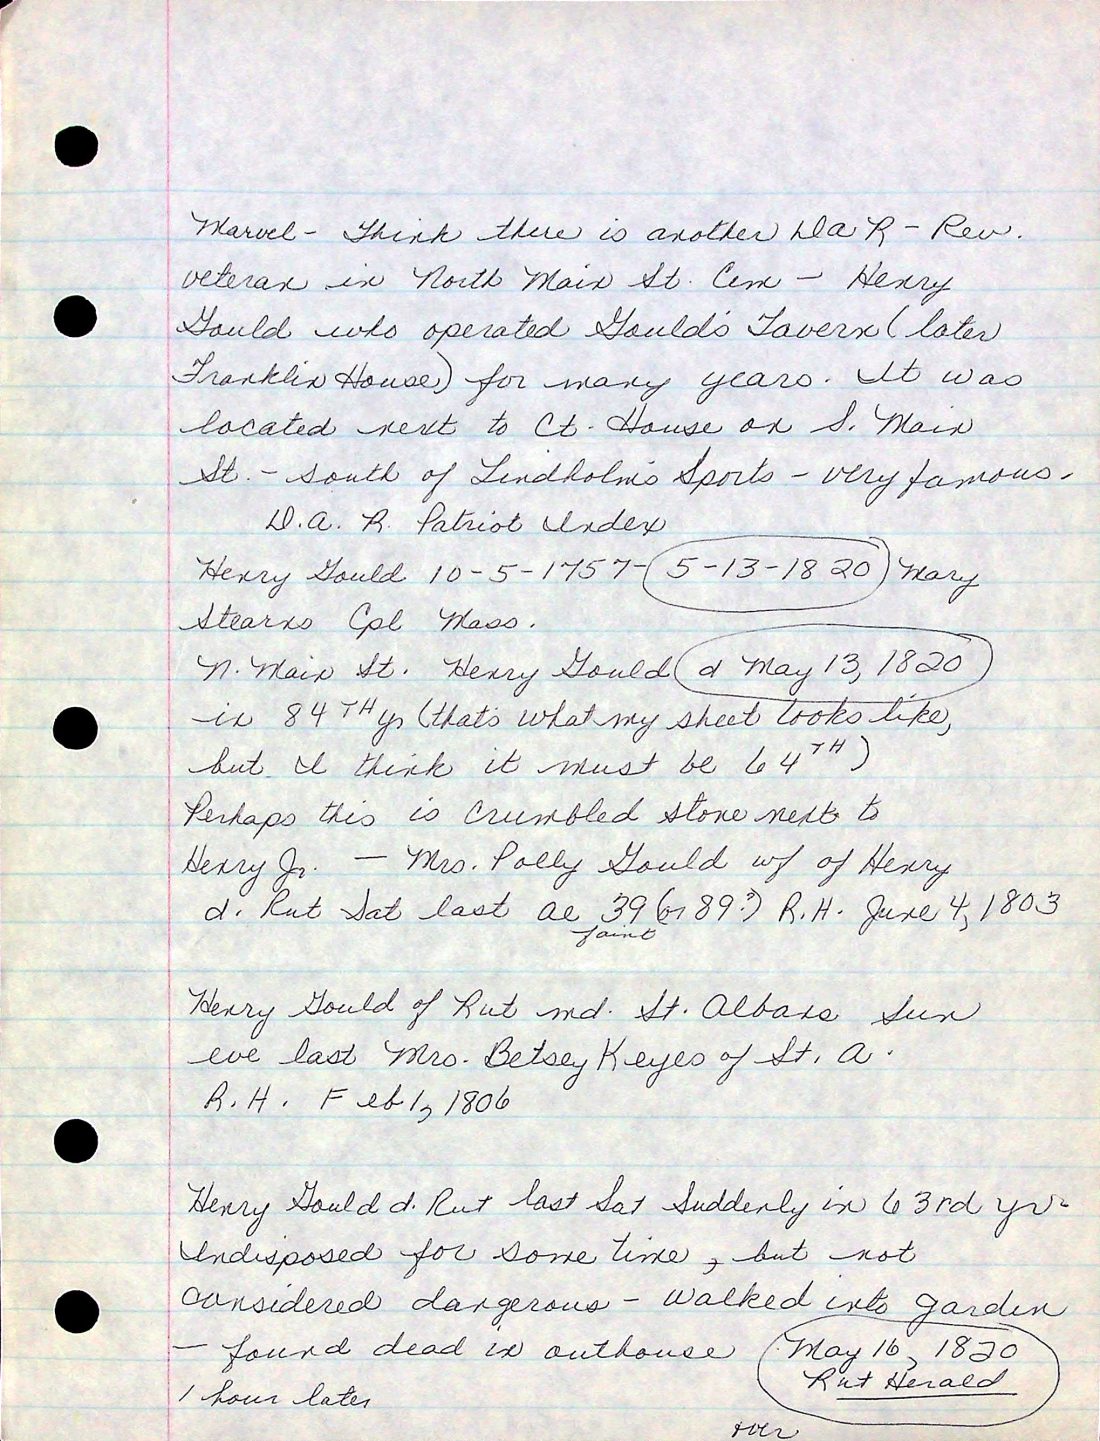 Marvel - Think there is another DaR - Rev.
veteran in North Main St. Cem - Henry
Gould who operated Gould's Tavern (later
Franklin House) for many years. It was
located next to Ct. House on S. Main
St. - south of Lindholm's Sports - very famous.
D.a. R. Patriot Index
Henry Gould 10-5-1757- 5-13-1820 Mary
Stearns Cpl Mass.
N. Main St. Henry Gould d May 13, 1820
in 84TH yr (that's what my sheet looks like,
but I think it must be 64TH)
Perhaps this is crumbled stone next to
Henry Jr. - Mrs. Polly Gould wf of Henry
d. Rut Sat last ae 39 (or 89?) R.H. June 4, 1803
faint
Henry Gould of Rut md. St. Albans Sun
eve last Mrs. Betsey Keyes of St. A.
R.H. Feb 1, 1806
Henry Gould d. Rut last Sat Suddenly in 63rd yr -
Indisposed for some time, but not
considered dangerous - walked into garden
- found dead in outhouse May 16, 1820
1 hour later Rut Herald
over